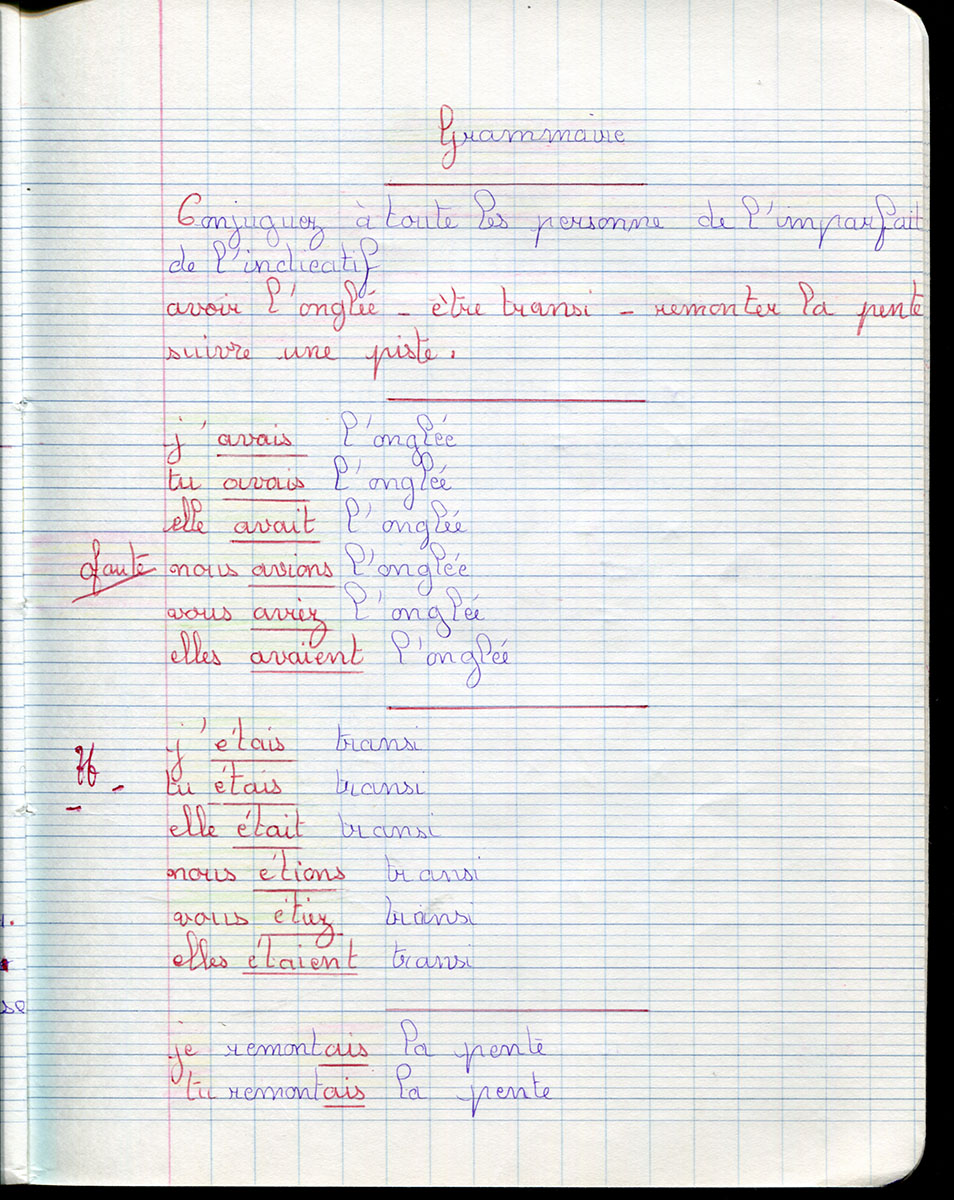 Grammaire
Conjuguez à toute les personne de l'imparfait
de l'indicatif
avoir l'onglée - être transi - remonter la pente
suivre une piste.
j'avais l'onglée
tu avais l'onglée
elle avait l'onglée
faute nous avions l'onglée
vous aviez l'onglée
elles avaient l'onglée
j'étais transi
tu étais transi
elle était transi
nous étions transi
vous étiez transi
elles étaient transi
je remontais la pente
tu remontais la pente